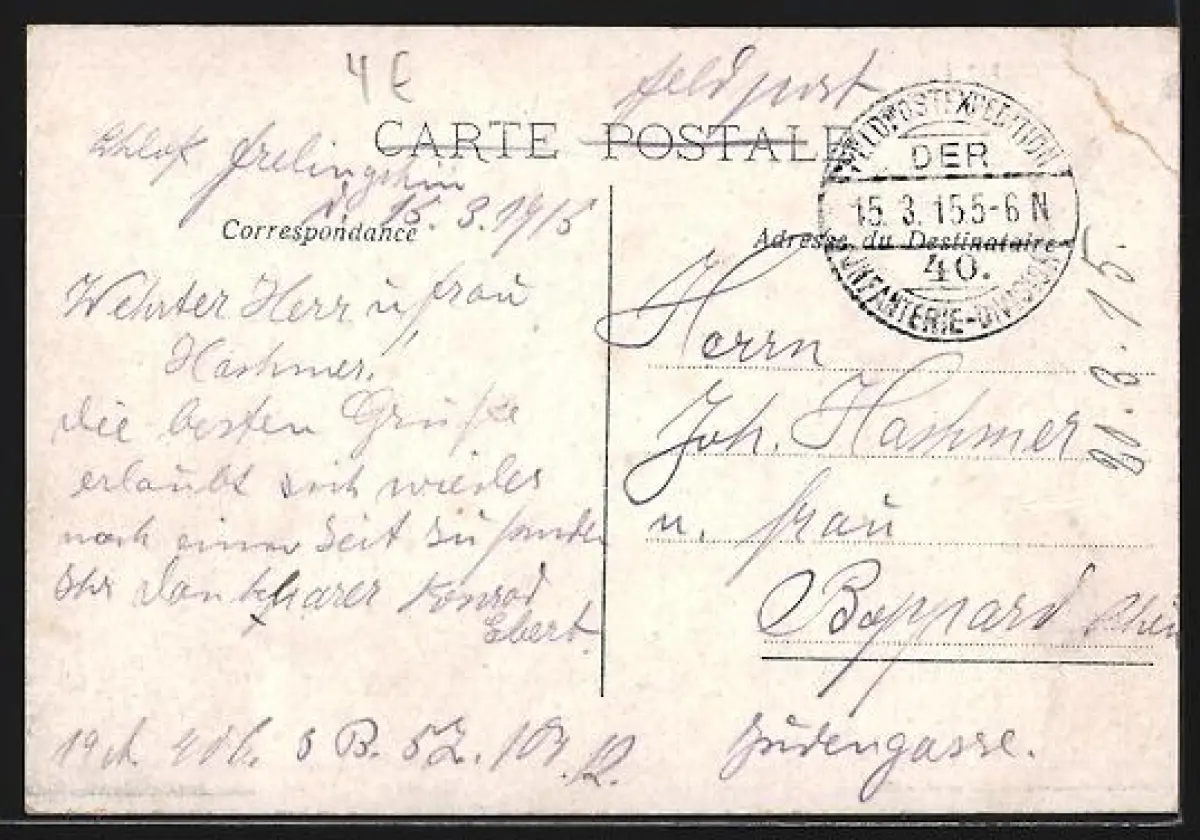 4 E
Feldpost
CARTE POSTALE
FELDPOSTEXPEDITION
DER
15. 3. 15. 5-6 N
40.
INFANTERIE-DIVISION
Frelinghin
d. 15. 3. 1915
Correspondance
Wehrter Herr u Frau
Hashmer!
die besten Grüße
erlaubt sich wieder
nach einer Zeit zu senden
Ihr dankbarer Konrad
Ebert
B. 52.
Adresse du Destinataire
Herrn
Joh. Hashmer
u. Frau
Boppard Rhein
Judengasse.
20. 3. 15.